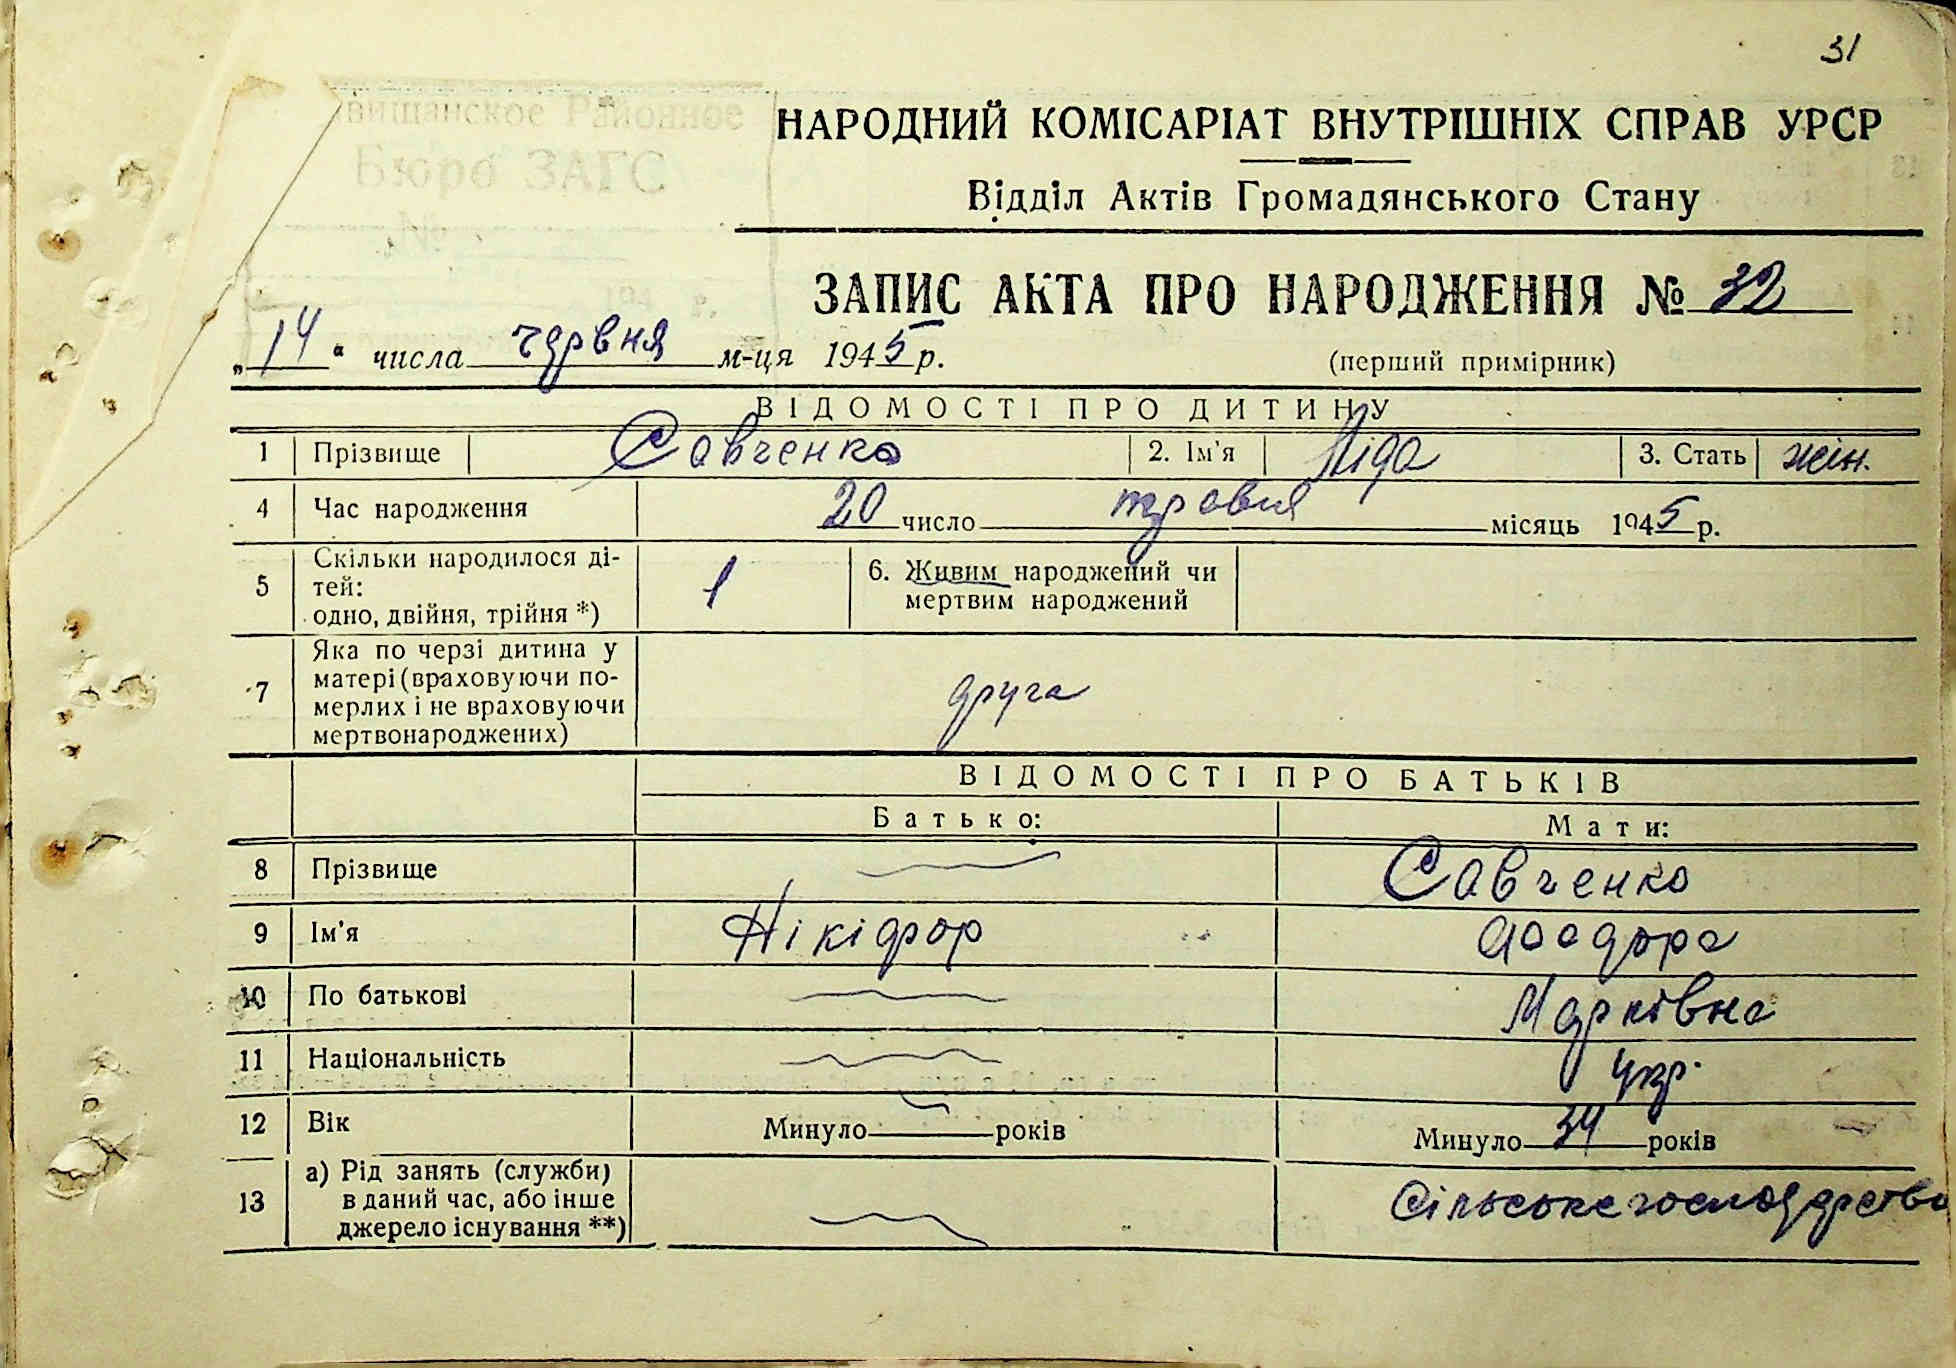 31
вищанское Районное
Бюро ЗАГС
№
194 г.
НАРОДНИЙ КОМІСАРІАТ ВНУТРІШНІХ СПРАВ УРСР
Відділ Актів Громадянського Стану
ЗАПИС АКТА ПРО НАРОДЖЕННЯ № 32
„14“ числа червня м-ця 1945 р. (перший примірник)
ВІДОМОСТІ ПРО ДИТИНУ
1 Прізвище Савченко 2. Ім'я Ліда 3. Стать жін.
4 Час народження 20 число травня місяць 1945 р.
5 Скільки народилося ді-
тей:
одно, двійня, трійня *) 1 6. Живим народжений чи
мертвим народжений
7 Яка по черзі дитина у
матері (враховуючи по-
мерлих і не враховуючи
мертвонароджених) друга
ВІДОМОСТІ ПРО БАТЬКІВ
Батько: Мати:
8 Прізвище Савченко
9 Ім'я Нікіфор
10 По батькові Марківна
11 Національність укр.
12 Вік Минуло років Минуло 34 років
13 а) Рід занять (служби)
в даний час, або інше
джерело існування **) Сільське господарство